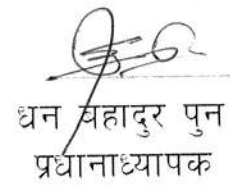 धन बहादुर पुन
प्रधानाध्यापक